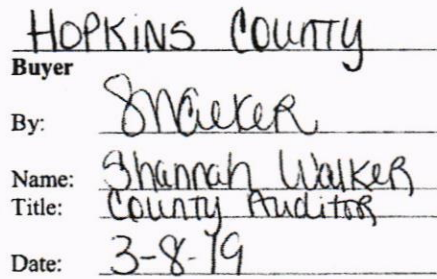 HOPKINS COUNTY
Buyer
By: SWalker
Name: Shannah Walker
Title: County Auditor
Date: 3-8-19